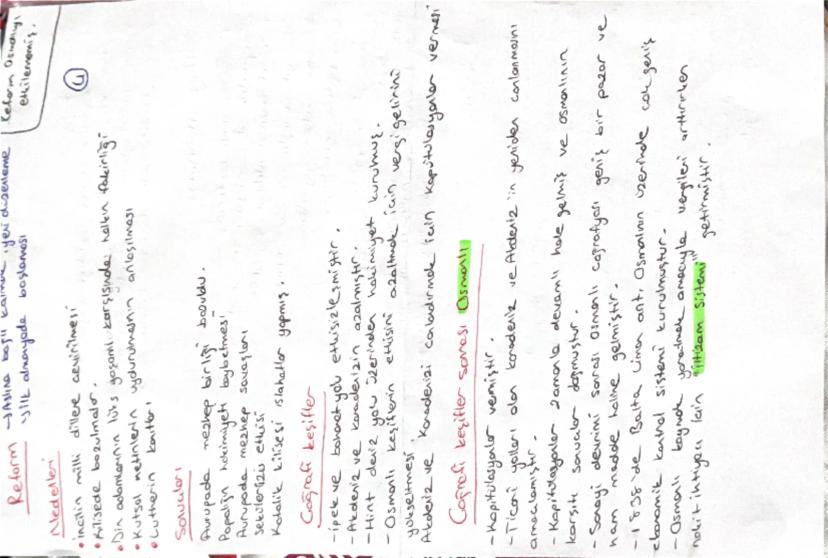 Reform → Aslına bağlı kalmak, yeni düzenleme
→ ilk almanyada başlaması
Reform Osmanlıyı
etkilememiş.
4
Nedenleri
• incilin milli dillere çevirilmesi
• Kilisede bozulmalar.
• Din adamlarının lüks yaşamı karşısında halkın fakirliği
• Kutsal metinlerin uydurulmasının anlaşılması
• Lutherin
Sonuçları
Avrupada mezhep birliği bozuldu.
Papalığın hakimiyeti kaybetmesi
Avrupada mezhep savaşları
Sekülerizm etkisi
Katolik kilisesi ıslahatlar yapmış.
Coğrafi keşifler
- ipek ve baharat yolu etkisizleşmiştir.
- Akdeniz ve karadenizin azalmıştır.
- Hint deniz yolu üzerinden hakimiyet kurulmuş.
- Osmanlı keşiflerin etkisini azaltmak için vergi gelirini
yükseltmesi
Akdeniz ve Karadenizi canlandırmak için kapitülasyonlar vermesi
Coğrafi keşifler sonrası Osmanlı
- Kapitülasyonlar vermiştir.
- Ticari yolları olan karadeniz ve Akdeniz'in yeniden canlanmasını
amaçlamıştır.
- Kapitülasyonlar zamanla devamlı hale gelmiş ve osmanlının
karşıtı sonuçlar doğmuştur.
- Sanayi devrimi sonrası Osmanlı coğrafyası geniş bir pazar ve
ham madde haline gelmiştir.
- 1838'de Balta Liman ant. Osmanlının üzerinde çok geniş
ekonomik kontrol sistemi kurulmuştur.
- Osmanlı kaynak yaratmak amacıyla vergileri arttırırken
nakit ihtiyacı için "iltizam sistemi" getirmiştir.